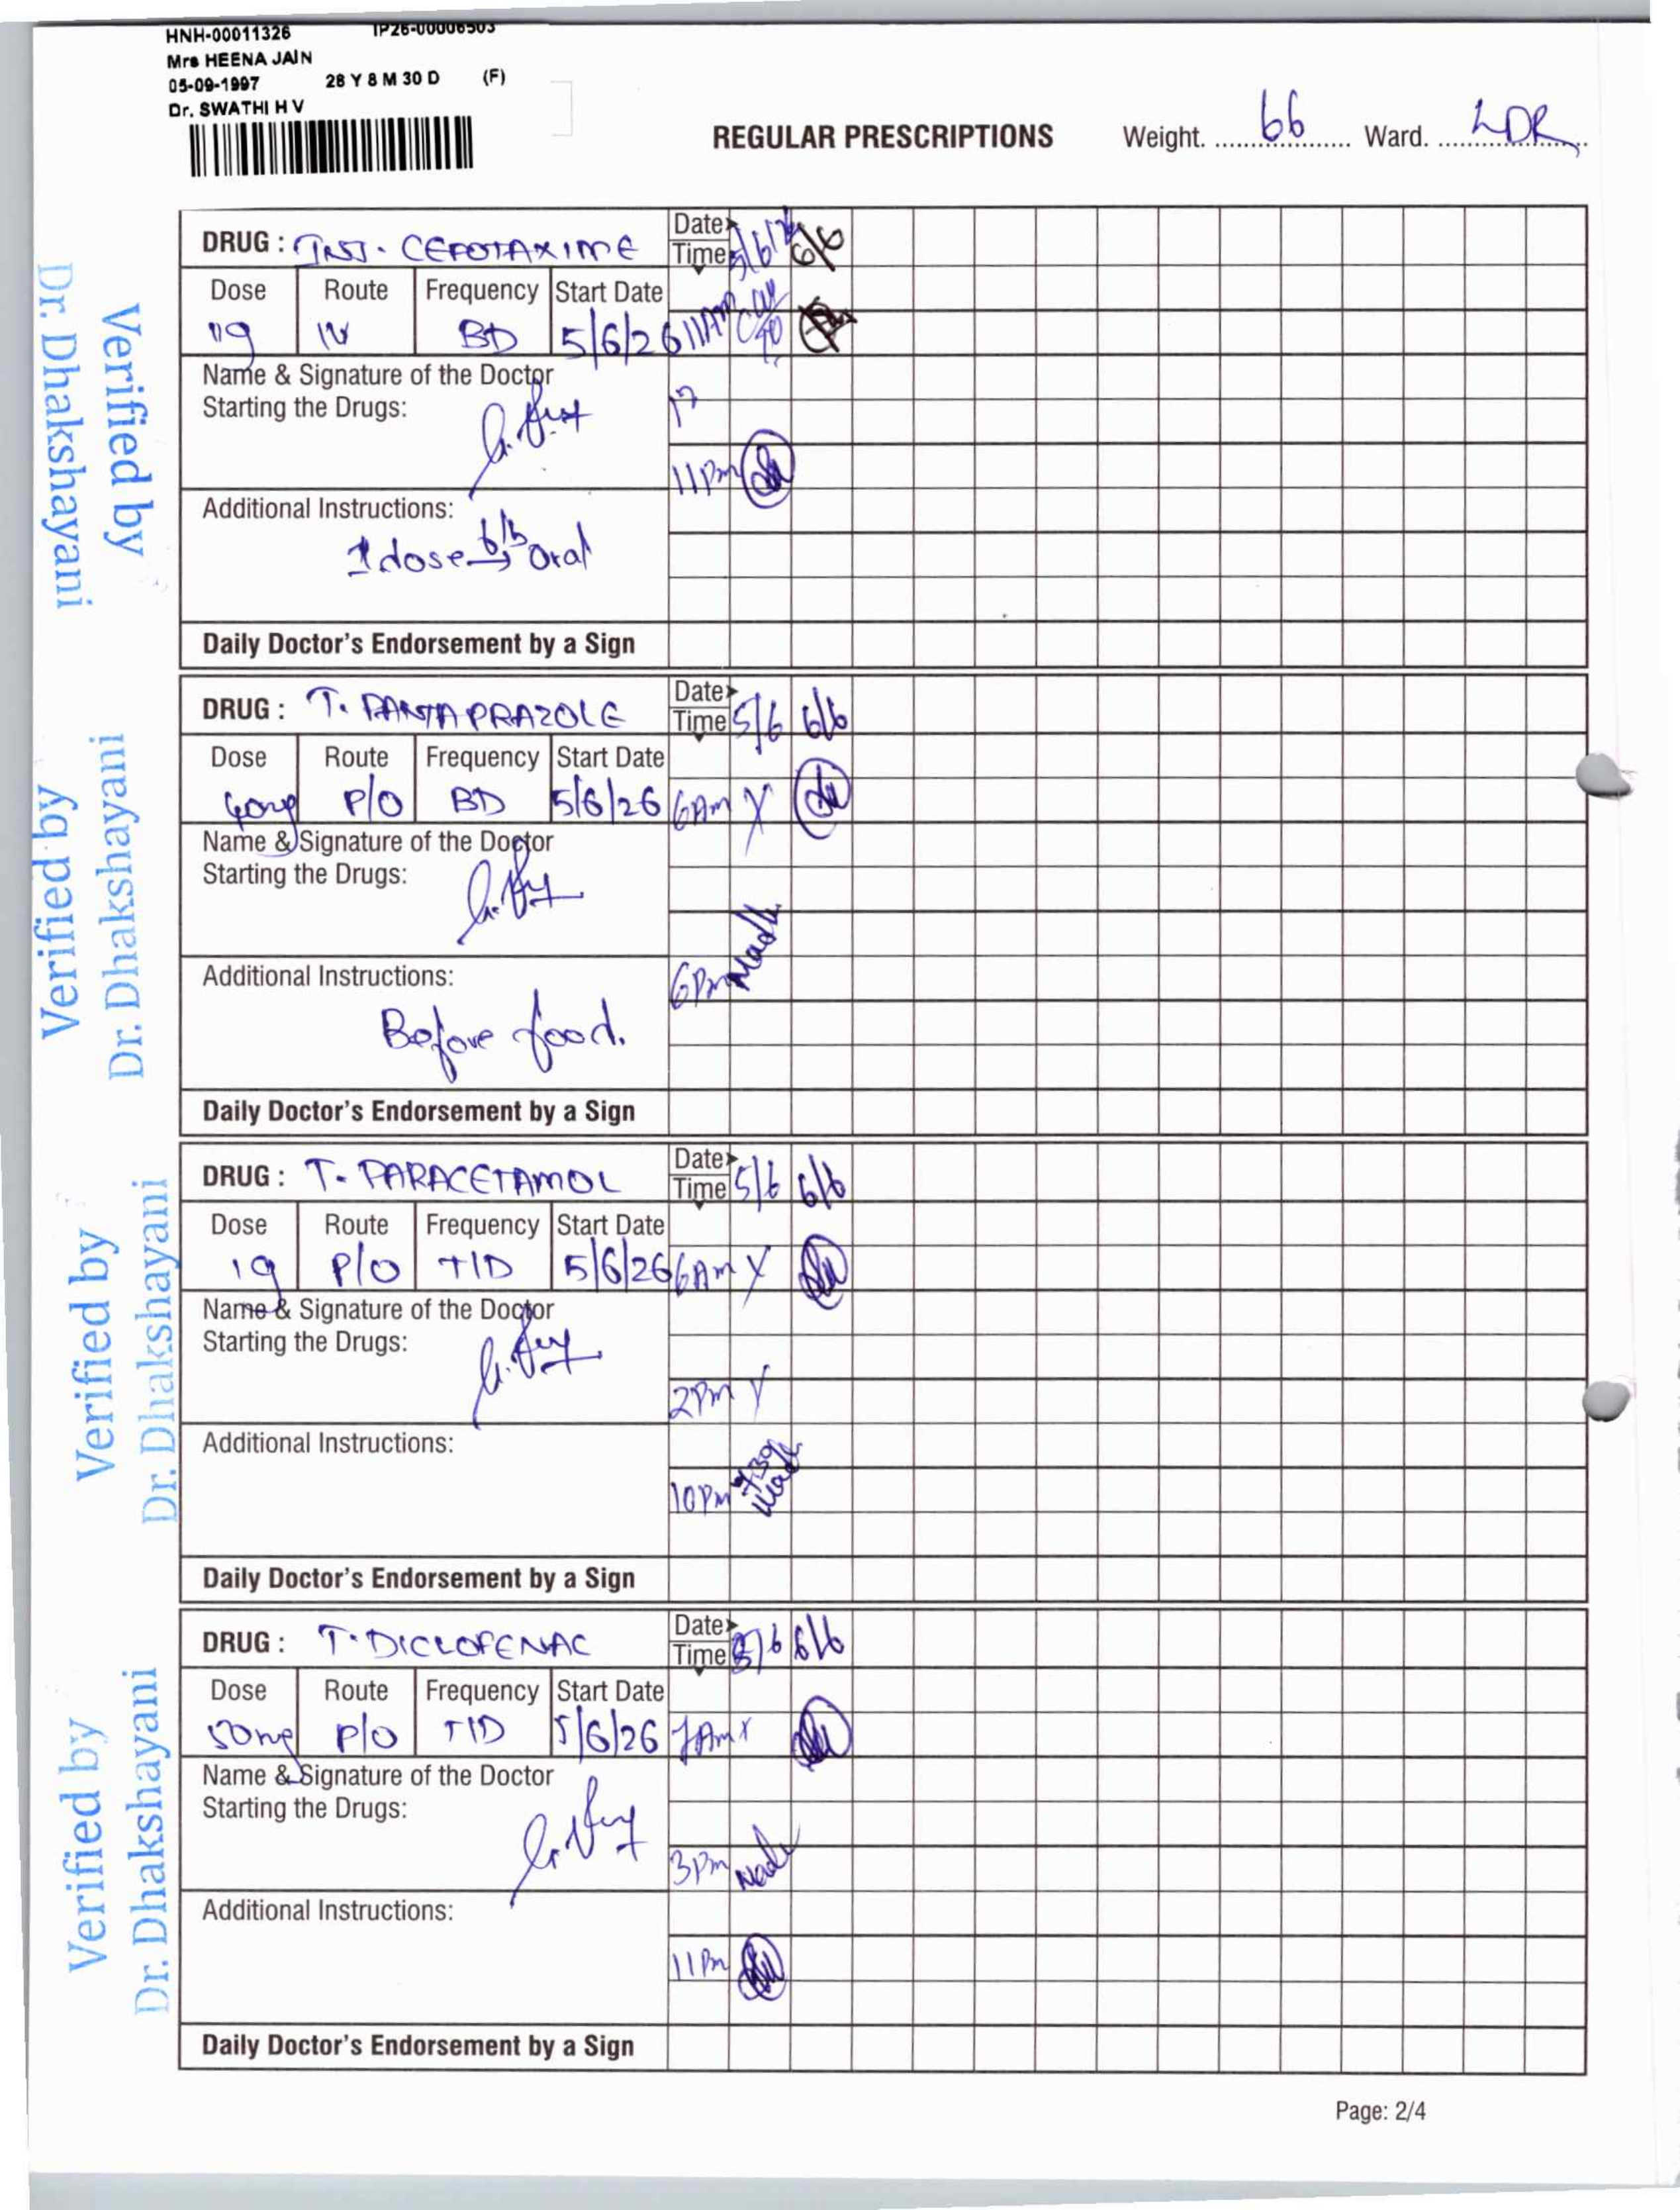 HNH-00011326 IP26-00006503
Mrs HEENA JAIN
05-09-1997 28 Y 8 M 30 D (F)
Dr. SWATHI H V
REGULAR PRESCRIPTIONS Weight. 66 Ward. LDR
DRUG : INJ. CEFOTAXIME Date Time 5/6/26 6/6
Dose Route Frequency Start Date
1g IV BD 5/6/26 11AM
Name & Signature of the Doctor
Starting the Drugs:
11pm
Additional Instructions:
1 dose Oral
Daily Doctor's Endorsement by a Sign
Verified by
Dr. Dhakshayani
DRUG : T. PANTAPRAZOLE Date Time 5/6 6/6
Dose Route Frequency Start Date
40mg P/O BD 5/6/26 6AM X
Name & Signature of the Doctor
Starting the Drugs:
Additional Instructions: 6Pm
Before food.
Daily Doctor's Endorsement by a Sign
Verified by
Dr. Dhakshayani
DRUG : T. PARACETAMOL Date Time 5/6 6/6
Dose Route Frequency Start Date
1g P/O TID 5/6/26 6AM X
Name & Signature of the Doctor
Starting the Drugs:
2Pm
Additional Instructions:
10Pm
Daily Doctor's Endorsement by a Sign
Verified by
Dr. Dhakshayani
DRUG : T. DICLOFENAC Date Time 5/6 6/6
Dose Route Frequency Start Date
50mg P/O TID 5/6/26 7AM X
Name & Signature of the Doctor
Starting the Drugs:
3Pm
Additional Instructions:
11Pm
Daily Doctor's Endorsement by a Sign
Verified by
Dr. Dhakshayani
Page: 2/4